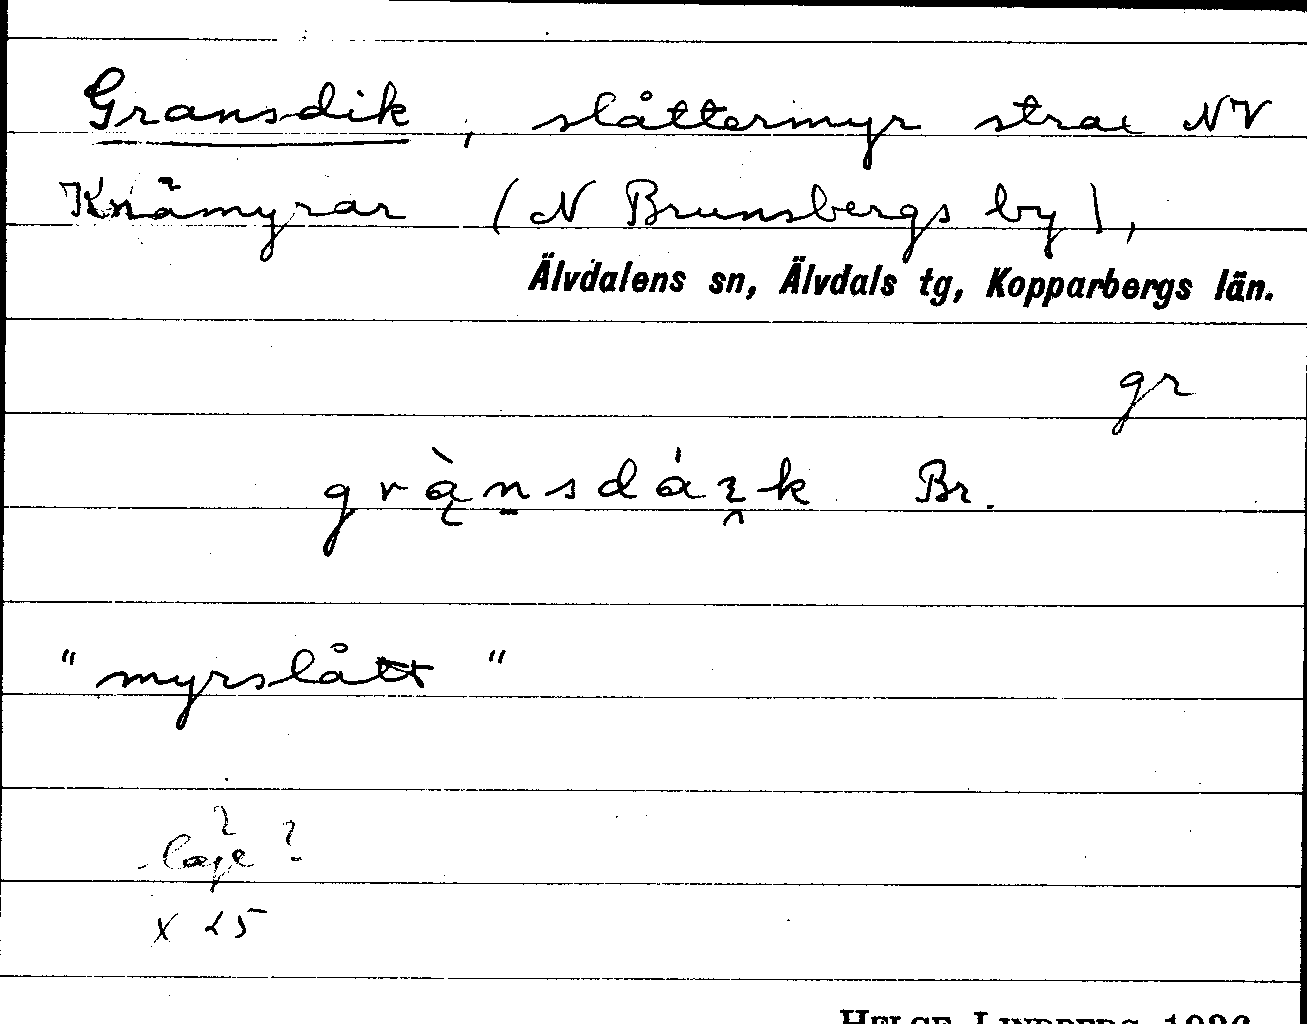 Gransdik, slåttermyr strax NV
Knämyrar (N Brunsbergs by),
Älvdalens sn, Älvdals tg, Kopparbergs län.
gr
Br.
"myrslått"
? ?
x 25
HELGE LINDBERG 1936